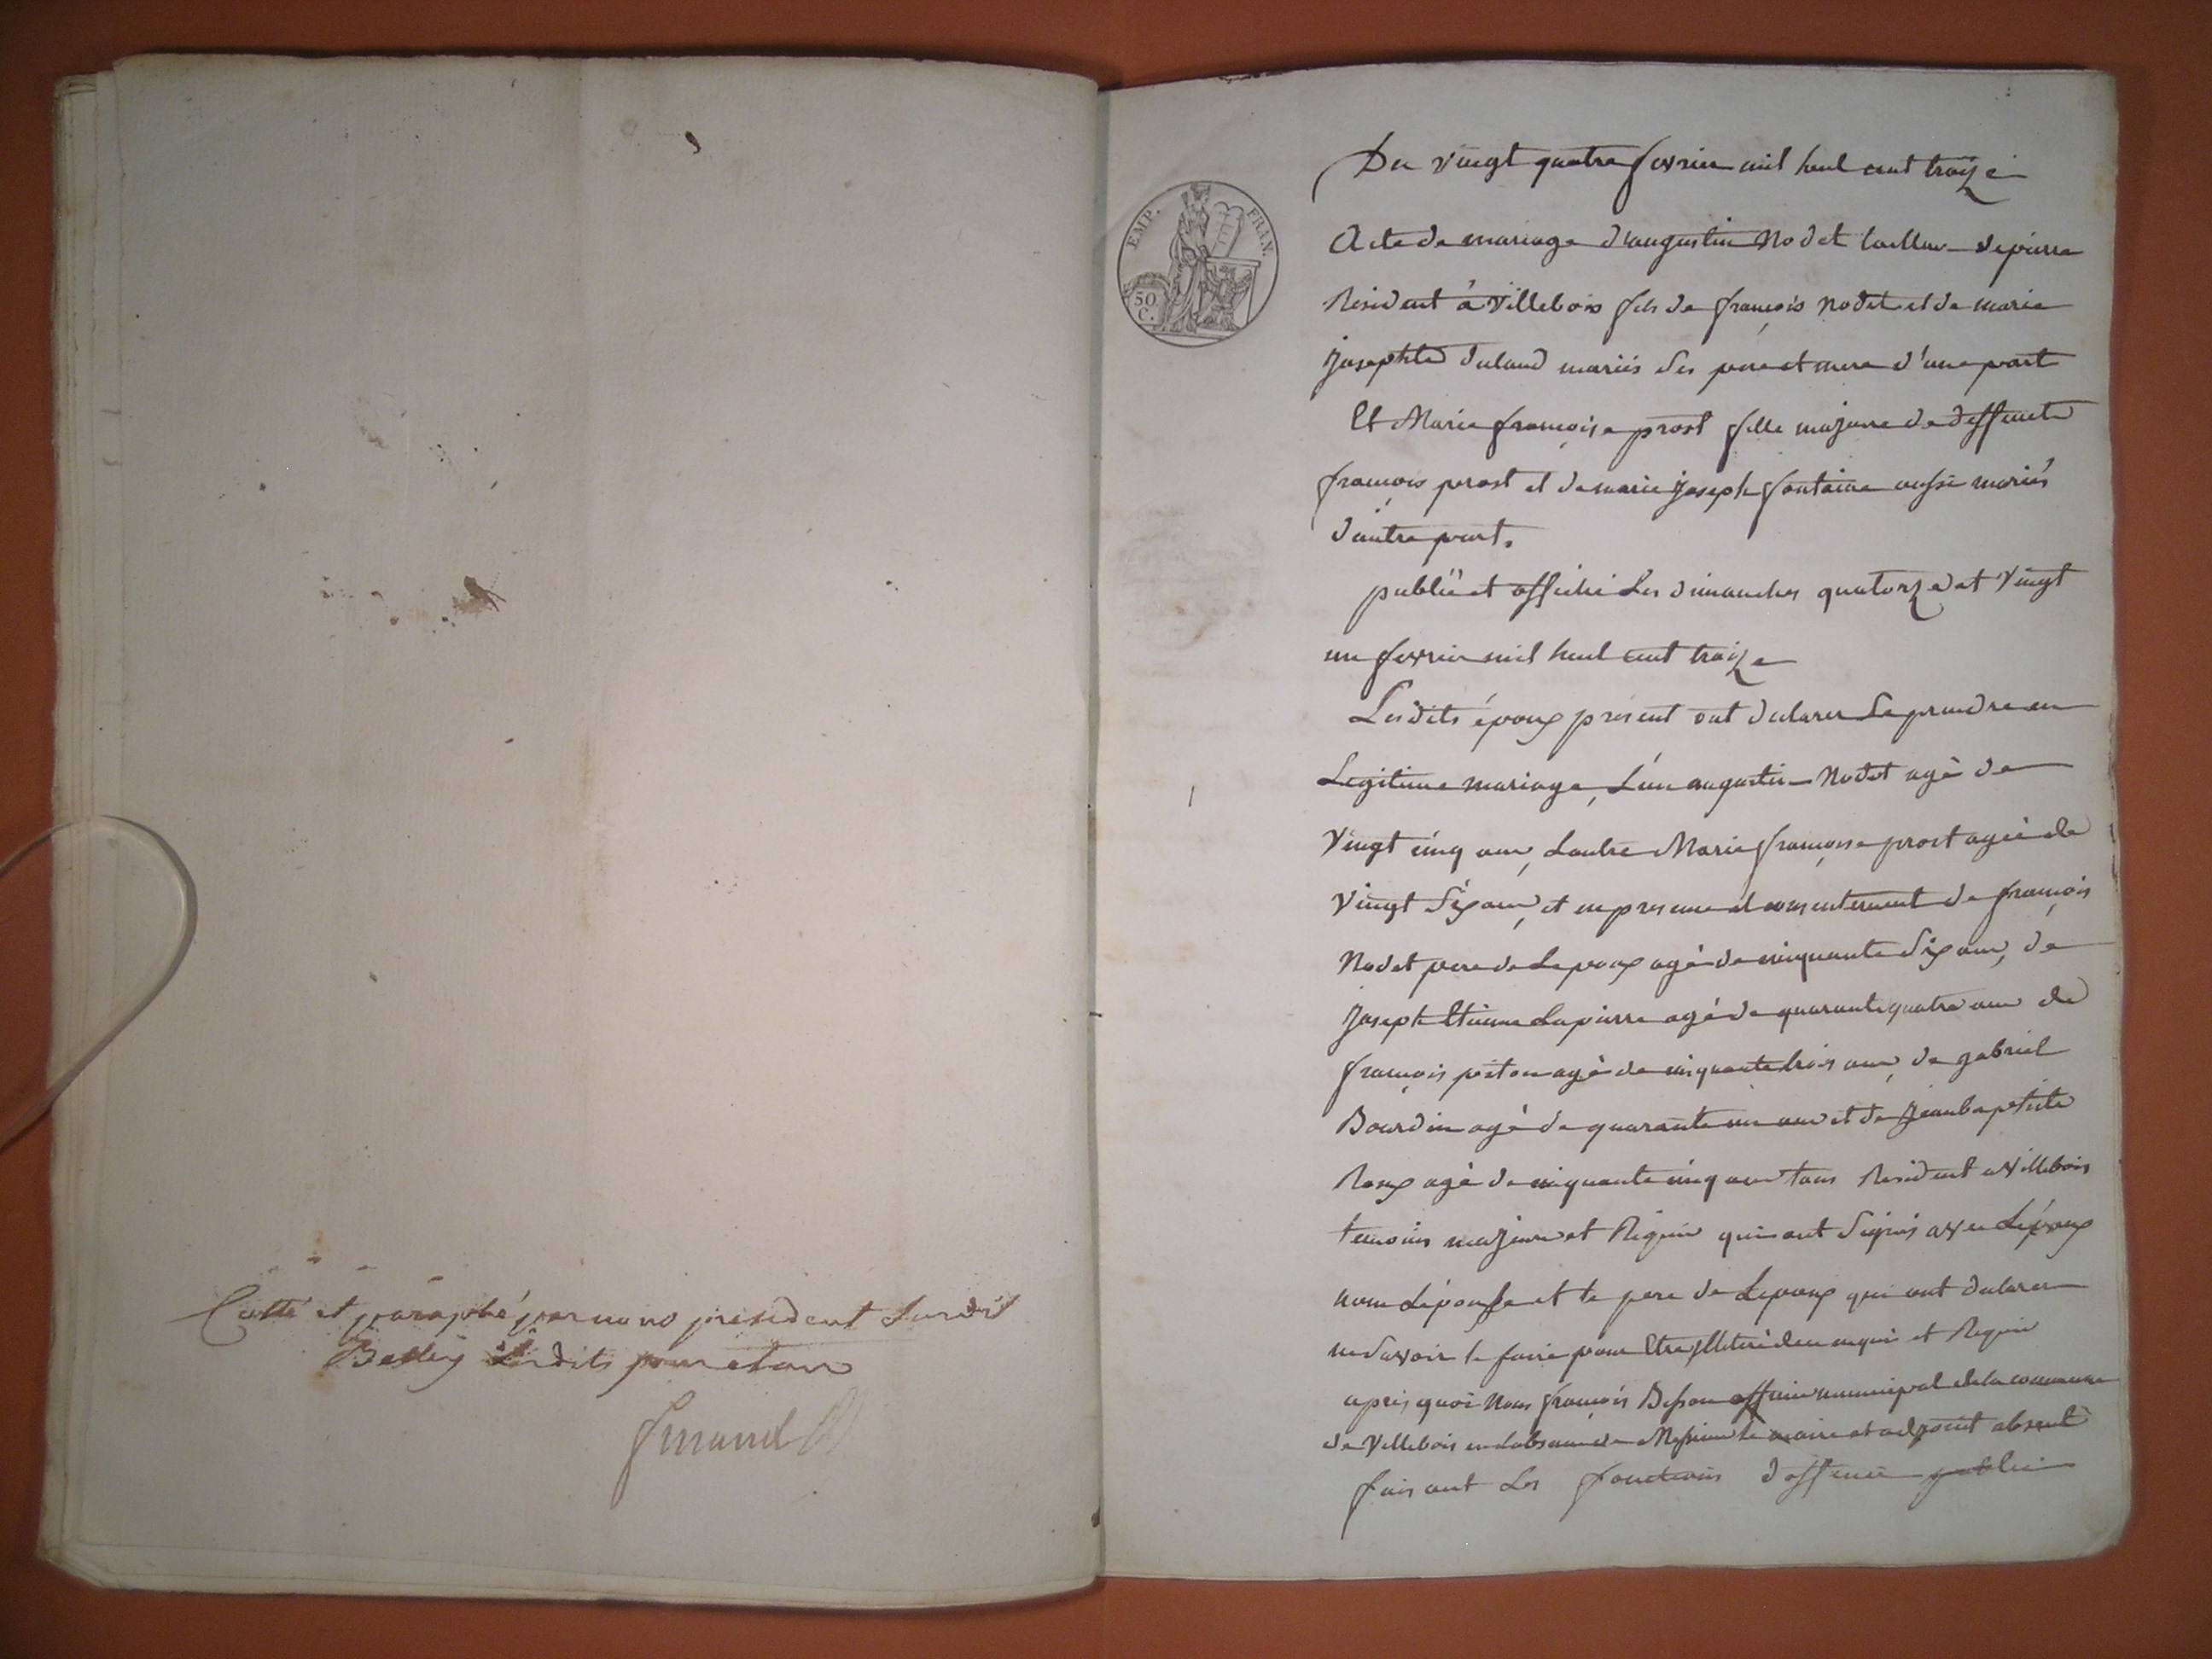 Cotté et paraphé par nous president susdit
Belley lesdits jour et an
EMP. FRAN.
50
C.
Du vingt quatre fevrier mil huit cent treize
Acte de mariage d'augustin Nodet tailleur de pierre
Résident à Villebois fils de françois nodet et de marie
Josephte duland mariés ses pere et mere d'une part
Et Marie françoise prost fille majeure de deffunct
françois prost et de marie Joseph fontaine aussi mariés
d'autre part.
publié et affiché Les dimanches quatorze et vingt
un fevrier mil huit cent treize
Lesdits époux présent ont déclarer se prendre en
Legitime mariage, L'un augustin Nodet agé de
vingt cinq ans, Lautre Marie françoise prost agée de
vingt six ans, et en presence et consentement de françois
Nodet pere de Lepoux agé de cinquante six ans, de
Joseph Etienne Lapierre agé de quarante quatre ans de
françois piston agé de cinquante trois ans, de gabriel
Bourdin agé de quarante un ans et de Jean baptiste
Roux agé de cinquante cinq ans tous Résident a Villebois
temoins majeurs et Requis qui ont signés avec L'époux
non L'épouse et le pere de Lepoux qui ont declarer
ne savoir le faire pour Etre illiteré de ce enquis et Requis
après quoi Nous françois officier municipal de la commune
de Villebois en Labsence de Messieurs le maire et adjoint absent
faisant Les fonctions d'officier public